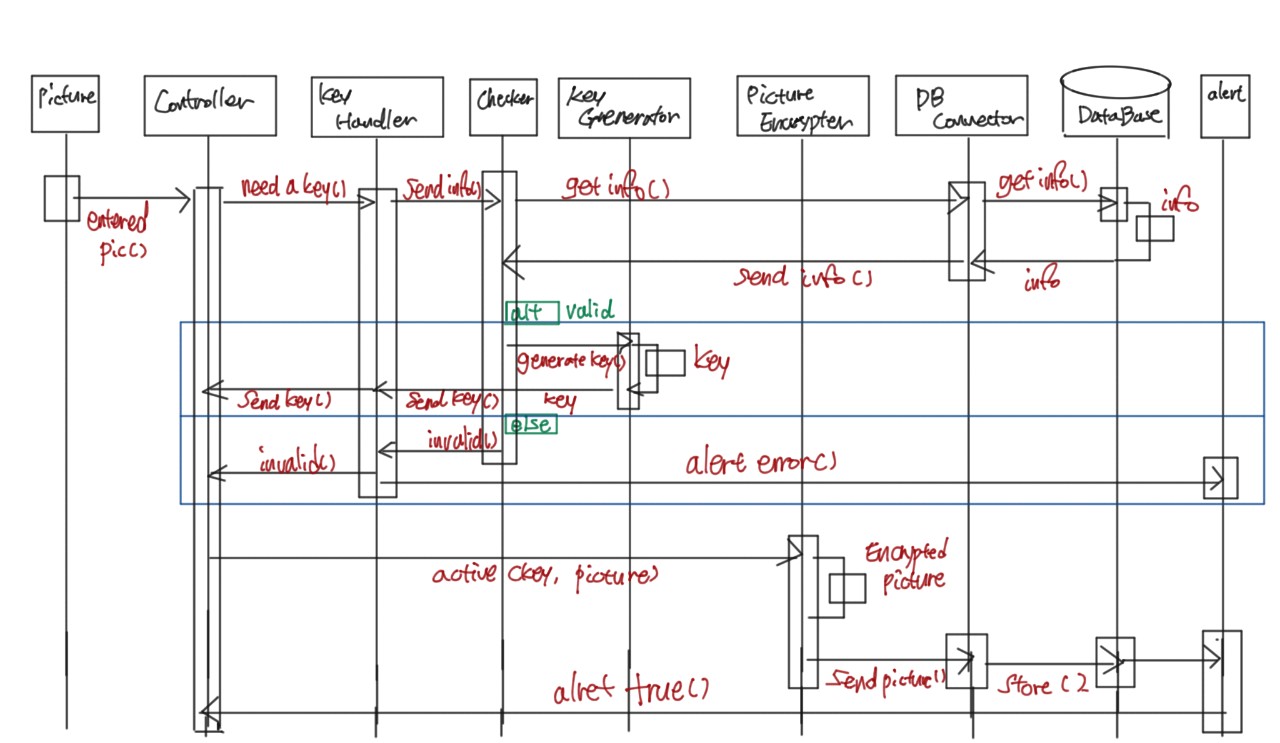 Picture
Controller
key
Handler
Checker
key
Generator
Picture
Encrypter
DB
Connector
DataBase
alert
need a key()
Send info()
get info()
get info()
info
entered
pic()
Send info()
info
alt valid
generate key()
key
Send key()
Send key()
key
else
invalid()
invalid()
alert error()
Encrypted
picture
active (key, picture)
Send picture()
Store()
alret true()